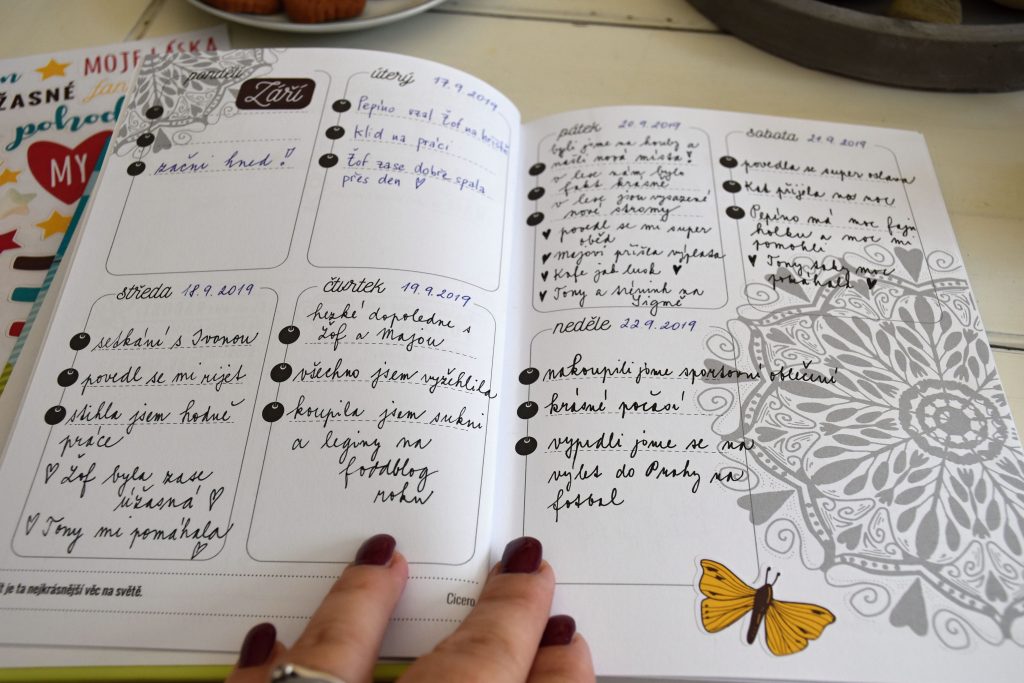 MOJE LÁSKA
ŽASNÉ
pohod
MY
pondělí
Září
začni hned!
úterý 17.9.2019
Pepíno vzal Žof na
Klid na práci
Žof zase dobře spala
přes den ♡
středa 18.9.2019
setkání s Ivonou
povedl se mi
stihla jsem hodně
práce
♡ Žof byla zase
úžasná ♡
♡ Tony mi pomáhala
♡
čtvrtek 19.9.2019
hezké dopoledne s
Žof a Majou
všechno jsem vyžehlila
koupila jsem sukni
a legíny na
foodblog
roku
t je ta nejkrásnější věc na světě.
Cicero
pátek 20.9.2019
byli jsme na houby a
našli nová místa!
v lese nám bylo
fakt krásně
v lese jsou vysazené
nové stromy
♥ povedl se mi super
oběd
♥ Majovi přišla výplata
♥ Kafe jak lusk ♥
♥ Tony a trénink na
Sigmě
sobota 21.9.2019
povedla se super oslava
Kát přijela na noc
Pepíno má moc fajn
holku a moc mi
pomohli
♥ Tony taky moc
pomáhala ♥
neděle 22.9.2019
nakoupili jsme sportovní oblečení
krásné počasí
vypadli jsme se na
výlet do Prahy na
fotbal